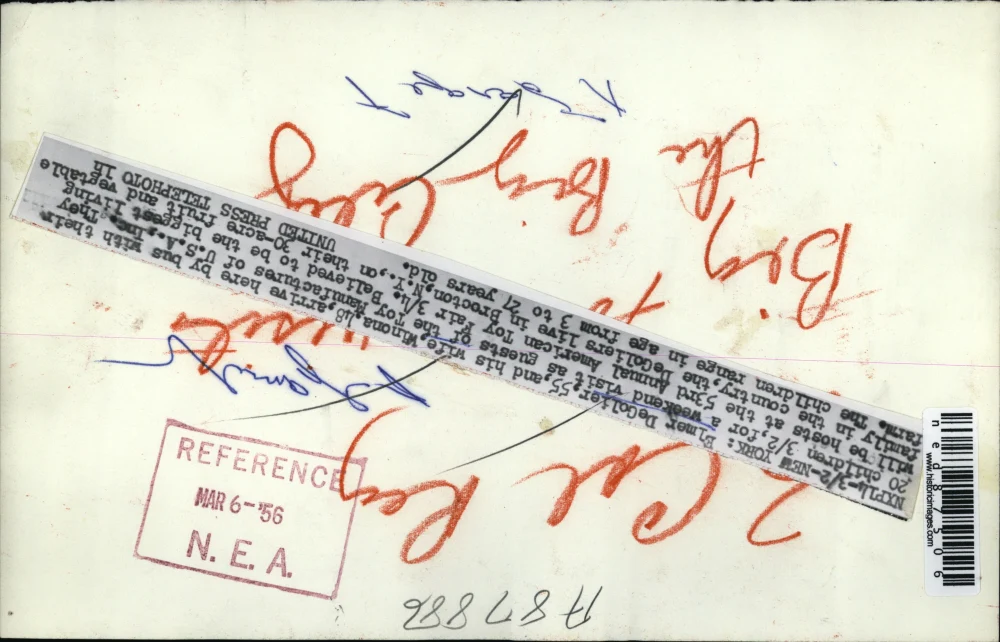 NXP14-3/2-NEW YORK: Elmer DeCollier, 55, and his wife, Winona, 48, arrive here by bus with their
20 children 3/2, for a weekend visit as guests of the Toy Manufactures of U.S.A., Inc. They
will be hosts at the 53rd Annual American Toy Fair 3/4. Believed to be the biggest living
family in the country, the DeColliers live in Brocton, N.Y., on their 30-acre fruit and vegtable
farm. The children range in age from 3 to 21 years old.
UNITED PRESS TELEPHOTO lh
2 Col Reg
Big
the Big City
REFERENCE
MAR 6-'56
N. E. A.
www.historicimages.com
ned87506